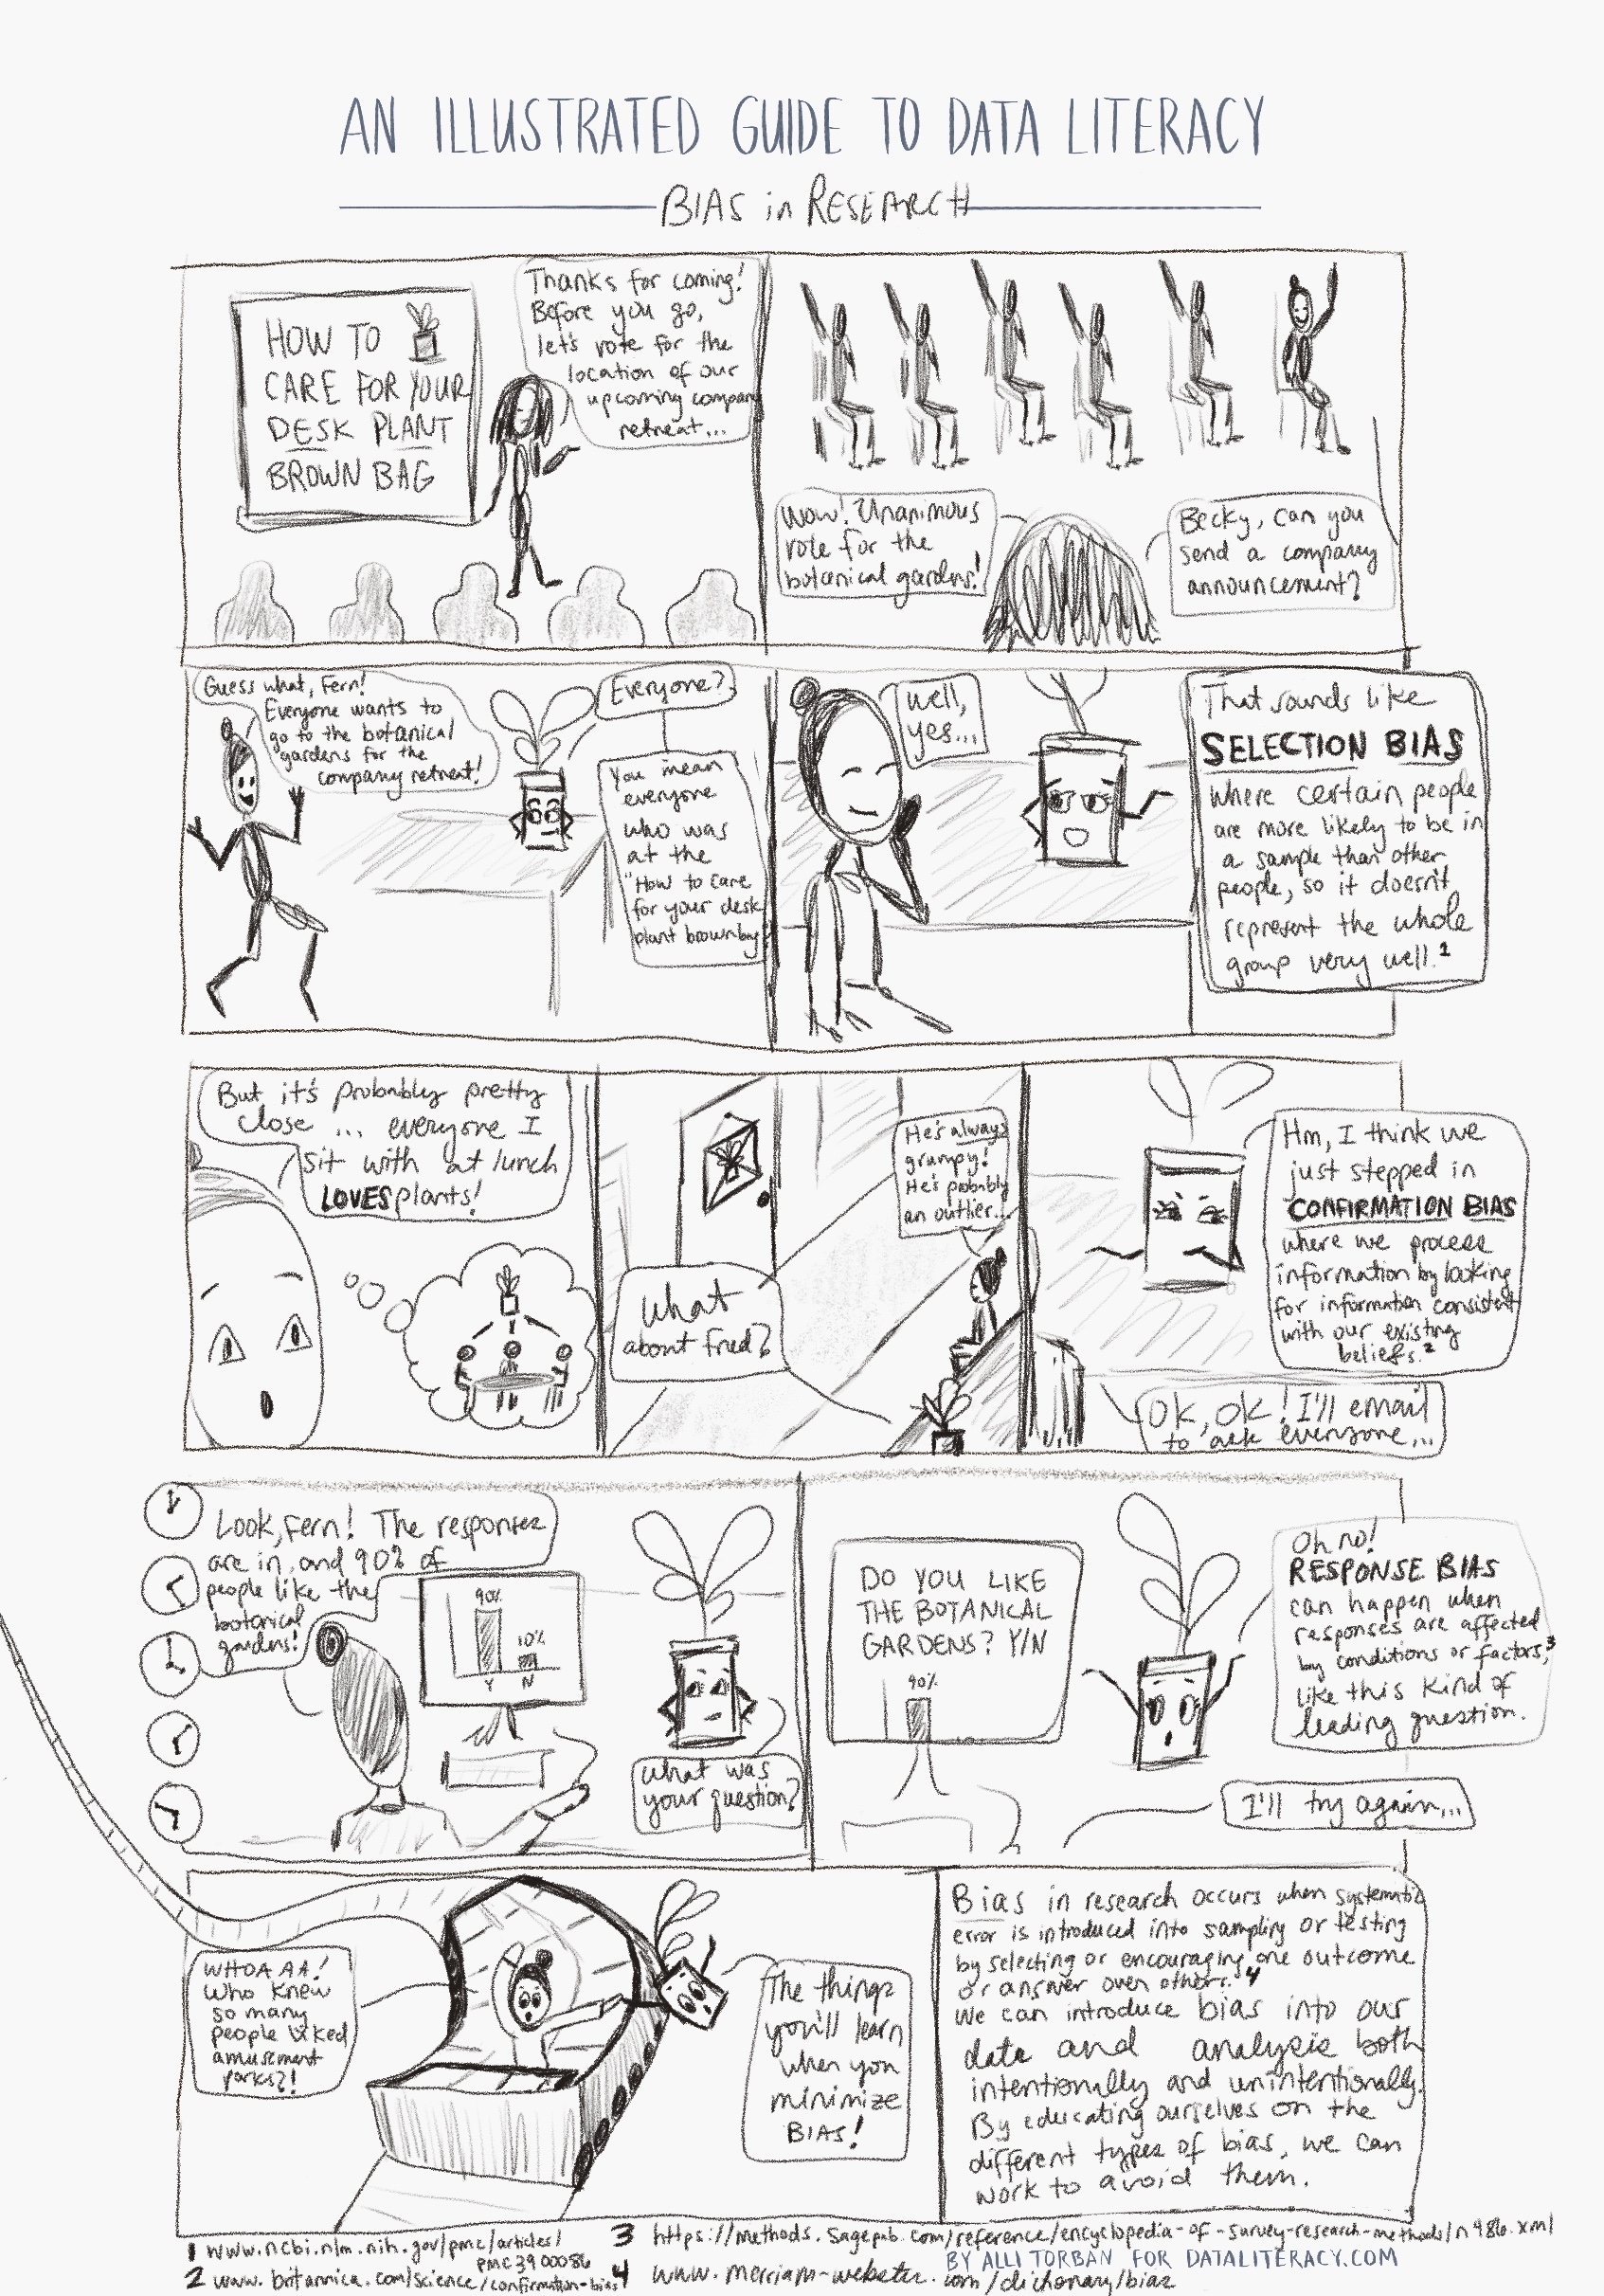 AN ILLUSTRATED GUIDE TO DATA LITERACY
BIAS in RESEARCH
HOW TO
CARE FOR YOUR
DESK PLANT
BROWN BAG
Thanks for coming!
Before you go,
let's vote for the
location of our
upcoming company
retreat...
Wow! Unanimous
vote for the
botanical gardens!
Becky, can you
send a company
announcement?
Guess what, Fern!
Everyone wants to
go to the botanical
gardens for the
company retreat!
Everyone?
You mean
everyone
who was
at the
"How to care
for your desk
plant brownbag?
Well,
yes...
That sounds like
SELECTION BIAS
where certain people
are more likely to be in
a sample than other
people, so it doesn't
represent the whole
group very well.1
But it's probably pretty
close ... everyone I
sit with at lunch
LOVES plants!
What
about Fred?
He's always
grumpy!
He's probably
an outlier...
Hm, I think we
just stepped in
CONFIRMATION BIAS
where we process
information by looking
for information consistent
with our existing
beliefs.2
Ok, ok! I'll email
to ask everyone...
Look, Fern! The responses
are in, and 90% of
people like the
botanical
gardens!
90%
10%
Y N
What was
your question?
DO YOU LIKE
THE BOTANICAL
GARDENS? Y/N
90%
Oh no!
RESPONSE BIAS
can happen when
responses are affected
by conditions or factors,3
like this kind of
leading question.
I'll try again...
WHOA AA!
Who knew
so many
people liked
amusement
parks?!
The things
you'll learn
when you
minimize
BIAS!
Bias in research occurs when systematic
error is introduced into sampling or testing
by selecting or encouraging one outcome
or answer over others.4
We can introduce bias into our
data and analysis both
intentionally and unintentionally.
By educating ourselves on the
different types of bias, we can
work to avoid them.
1 www.ncbi.nlm.nih.gov/pmc/articles/
PMC3900086
2 www.britannica.com/science/confirmation-bias
3 https://methods.sagepub.com/reference/encyclopedia-of-survey-research-methods/n486.xml
4 www.merriam-webster.com/dictionary/bias
BY ALLI TORBAN FOR DATALITERACY.COM